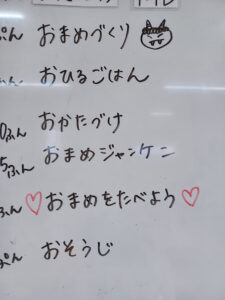 ぷん おまめづくり
おひるごはん
0ふん おかたづけ
5ふん おまめジャンケン
ふん ♡おまめをたべよう♡
ぷん おそうじ